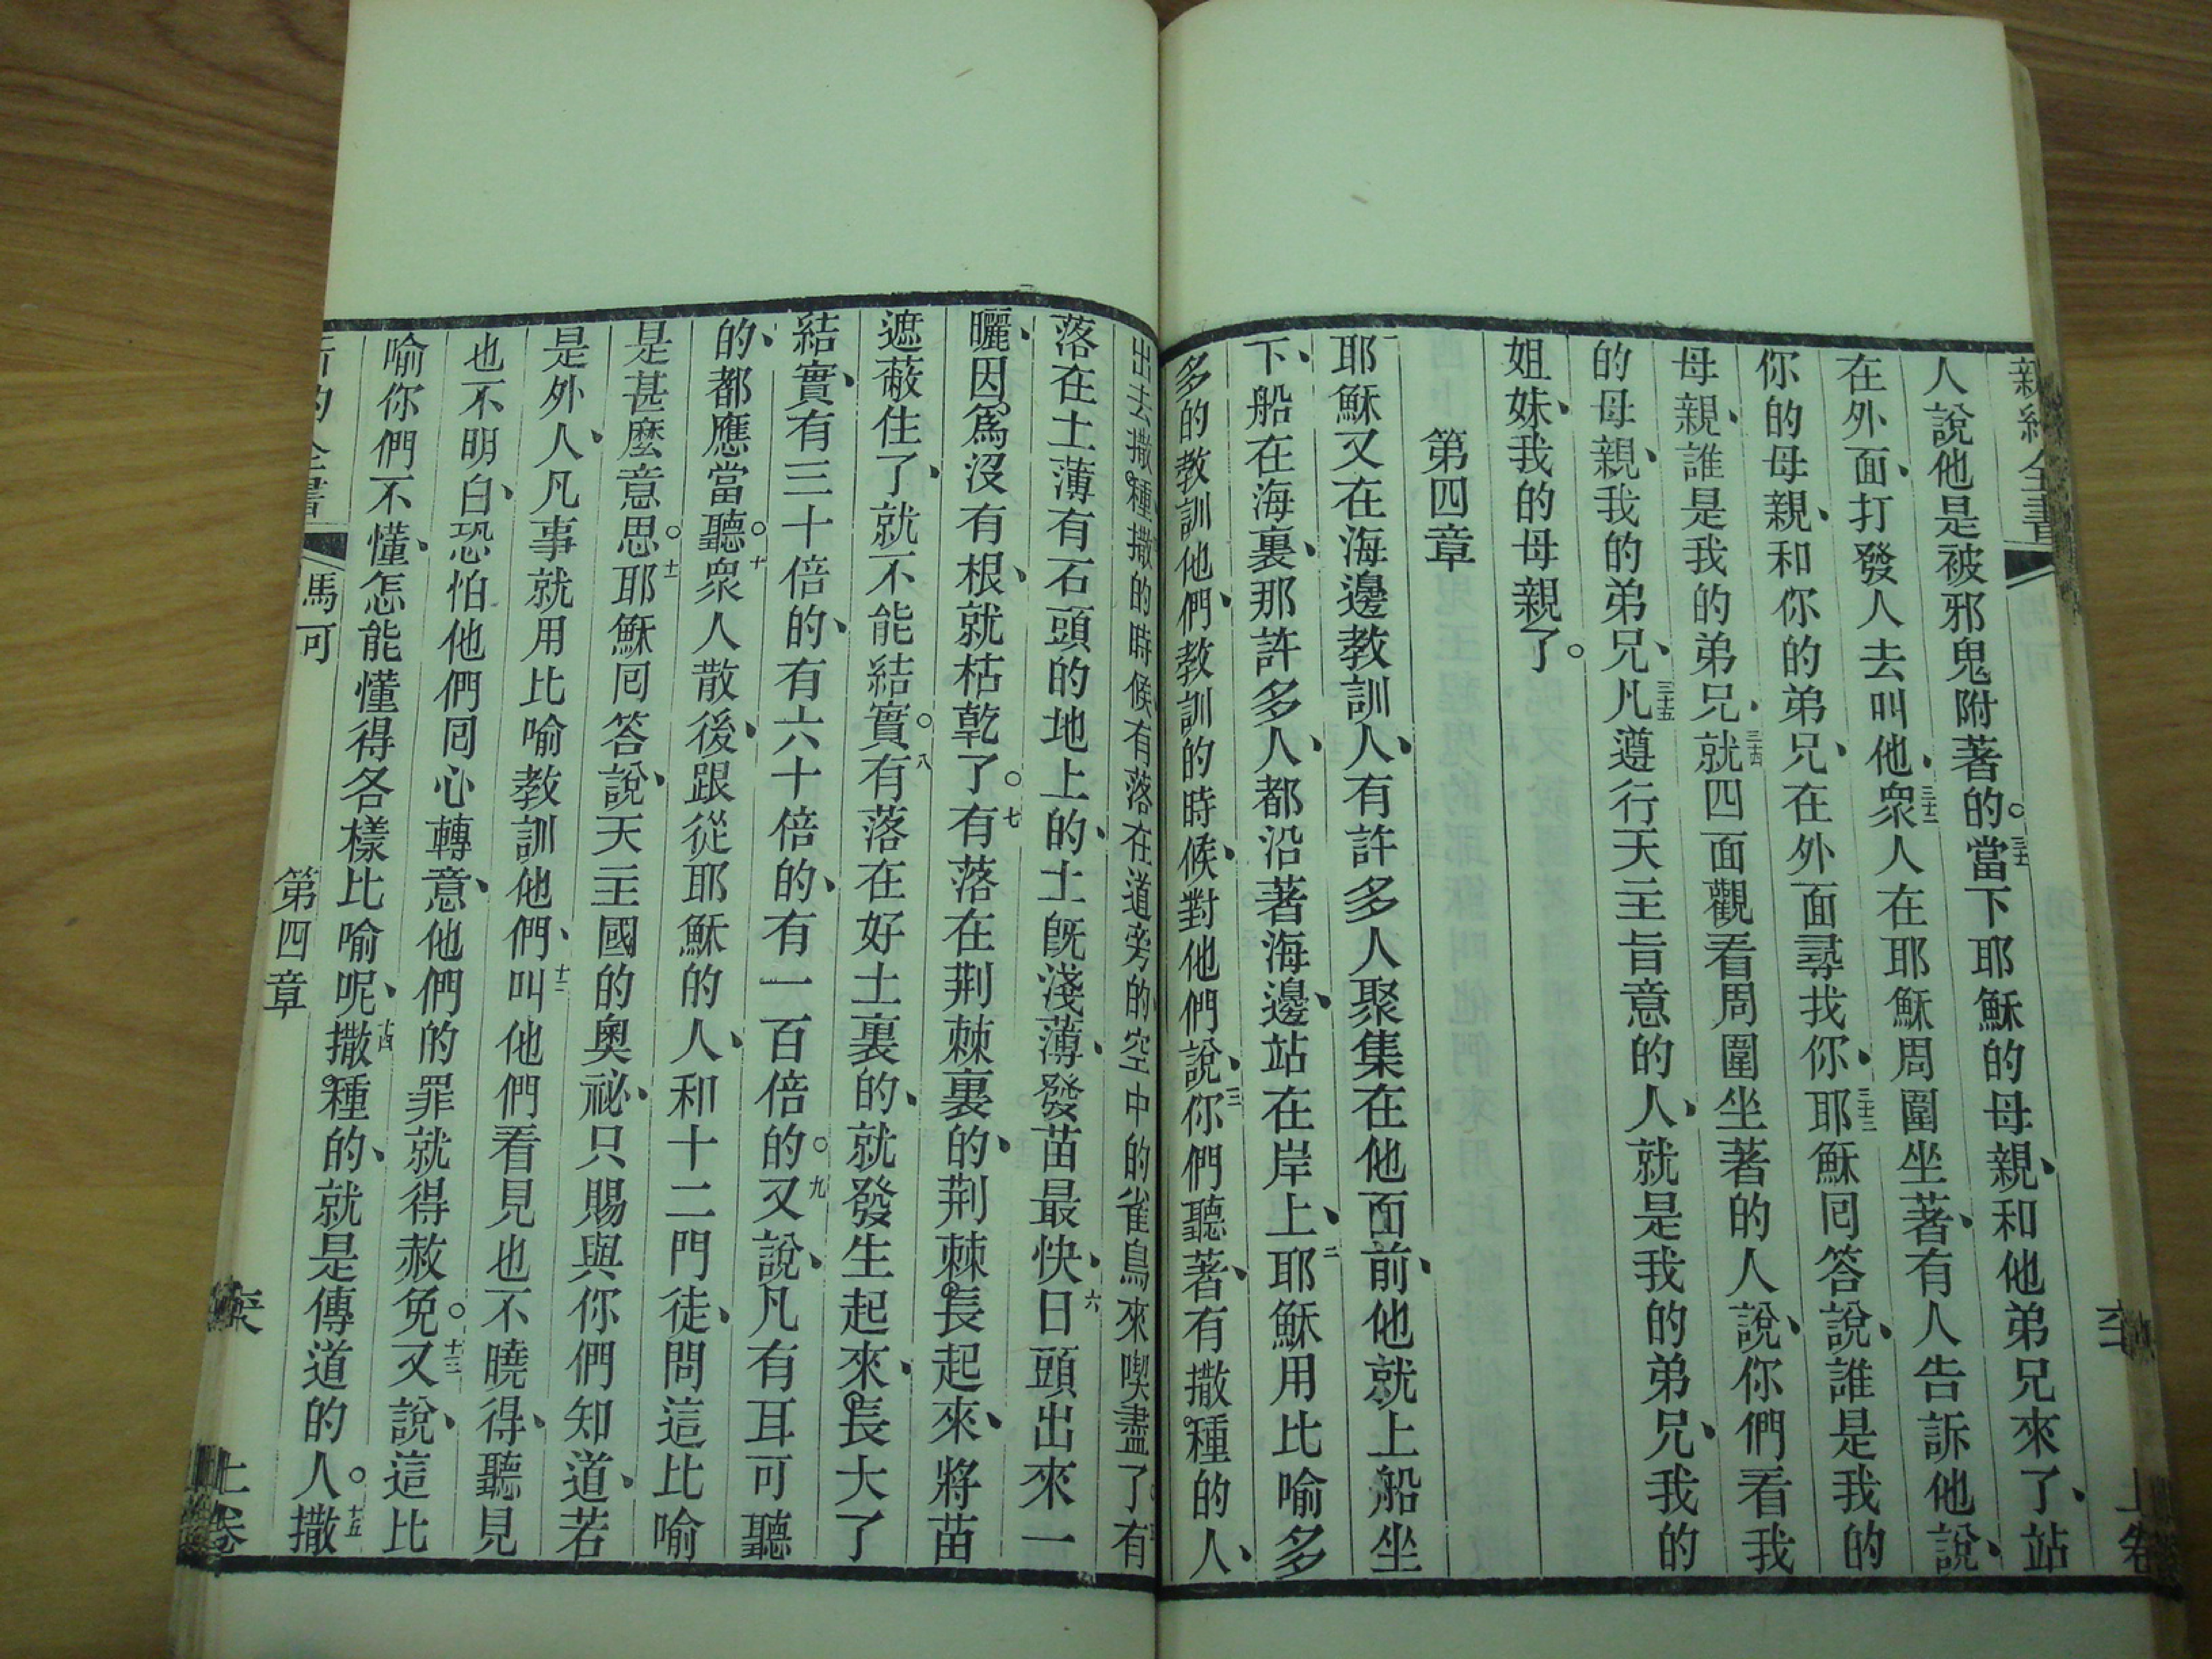 人說他是被邪鬼附著的。三十一當下耶穌的母親、和他弟兄來了、站
在外面、打發人去叫他、三十二衆人在耶穌周圍坐著、有人告訴他說、
你的母親、和你的弟兄、在外面尋找你、三十三耶穌囘答說、誰是我的
母親、誰是我的弟兄、三十四就四面觀看周圍坐著的人說、你們看我
的母親、我的弟兄、三十五凡遵行天主旨意的人、就是我的弟兄、我的
姐妹、我的母親了。
第四章
一耶穌又在海邊教訓人、有許多人聚集在他面前、他就上船坐
下、船在海裏、那許多人、都沿著海邊、站在岸上、二耶穌用比喻多
多的教訓他們、教訓的時候、對他們說、三你們聽著、有撒種的人、
出去撒種、撒的時候、有落在道旁的、空中的雀鳥來喫盡了。有
落在土薄有石頭的地上的、土旣淺薄、發苗最快、六日頭出來一
曬、因爲沒有根、就枯乾了。七有落在荆棘裏的、荆棘長起來、將苗
遮蔽住了、就不能結實。八有落在好土裏的、就發生起來、長大了
結實、有三十倍的、有六十倍的、有一百倍的。九又說、凡有耳可聽
的、都應當聽。十衆人散後、跟從耶穌的人、和十二門徒、問這比喻
是甚麼意思。十一耶穌囘答說、天主國的奧祕、只賜與你們知道、若
是外人、凡事就用比喻教訓他們、十二叫他們看見也不曉得、聽見
也不明白、恐怕他們囘心轉意、他們的罪就得赦免。十三又說、這比
喻你們不懂、怎能懂得各樣比喻呢、十四撒種的、就是傳道的人。十五撒
馬可
第四章
上卷